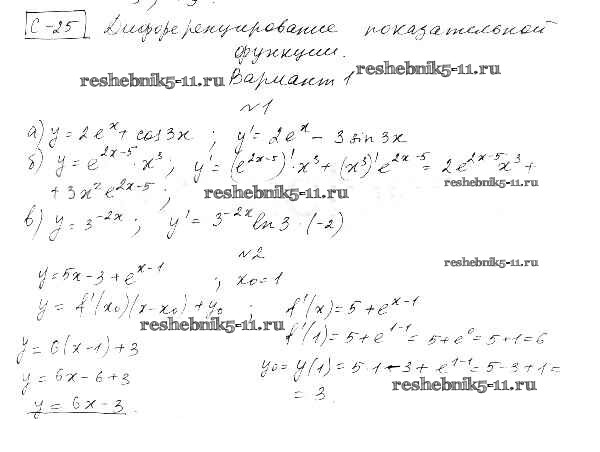 С-25 Дифференцирование показательной
функции.
reshebnik5-11.ru Вариант 1 reshebnik5-11.ru
№1
а) y = 2e^x + cos3x ; y' = 2e^x - 3 sin 3x
б) y = e^{2x-5} · x^3 ; y' = (e^{2x-5})' · x^3 + (x^3)' e^{2x-5} = 2e^{2x-5} x^3 +
+ 3x^2 e^{2x-5} ; reshebnik5-11.ru reshebnik5-11.ru
в) y = 3^{-2x} ; y' = 3^{-2x} ln 3 · (-2)
№2 reshebnik5-11.ru
y = 5x - 3 + e^{x-1} ; x₀ = 1
y = f'(x₀)(x - x₀) + y₀ ; f'(x) = 5 + e^{x-1}
reshebnik5-11.ru f'(1) = 5 + e^{1-1} = 5 + e^0 = 5 + 1 = 6
y = 6(x - 1) + 3 y₀ = y(1) = 5·1 - 3 + e^{1-1} = 5 - 3 + 1 =
y = 6x - 6 + 3 = 3. reshebnik5-11.ru
y = 6x - 3.